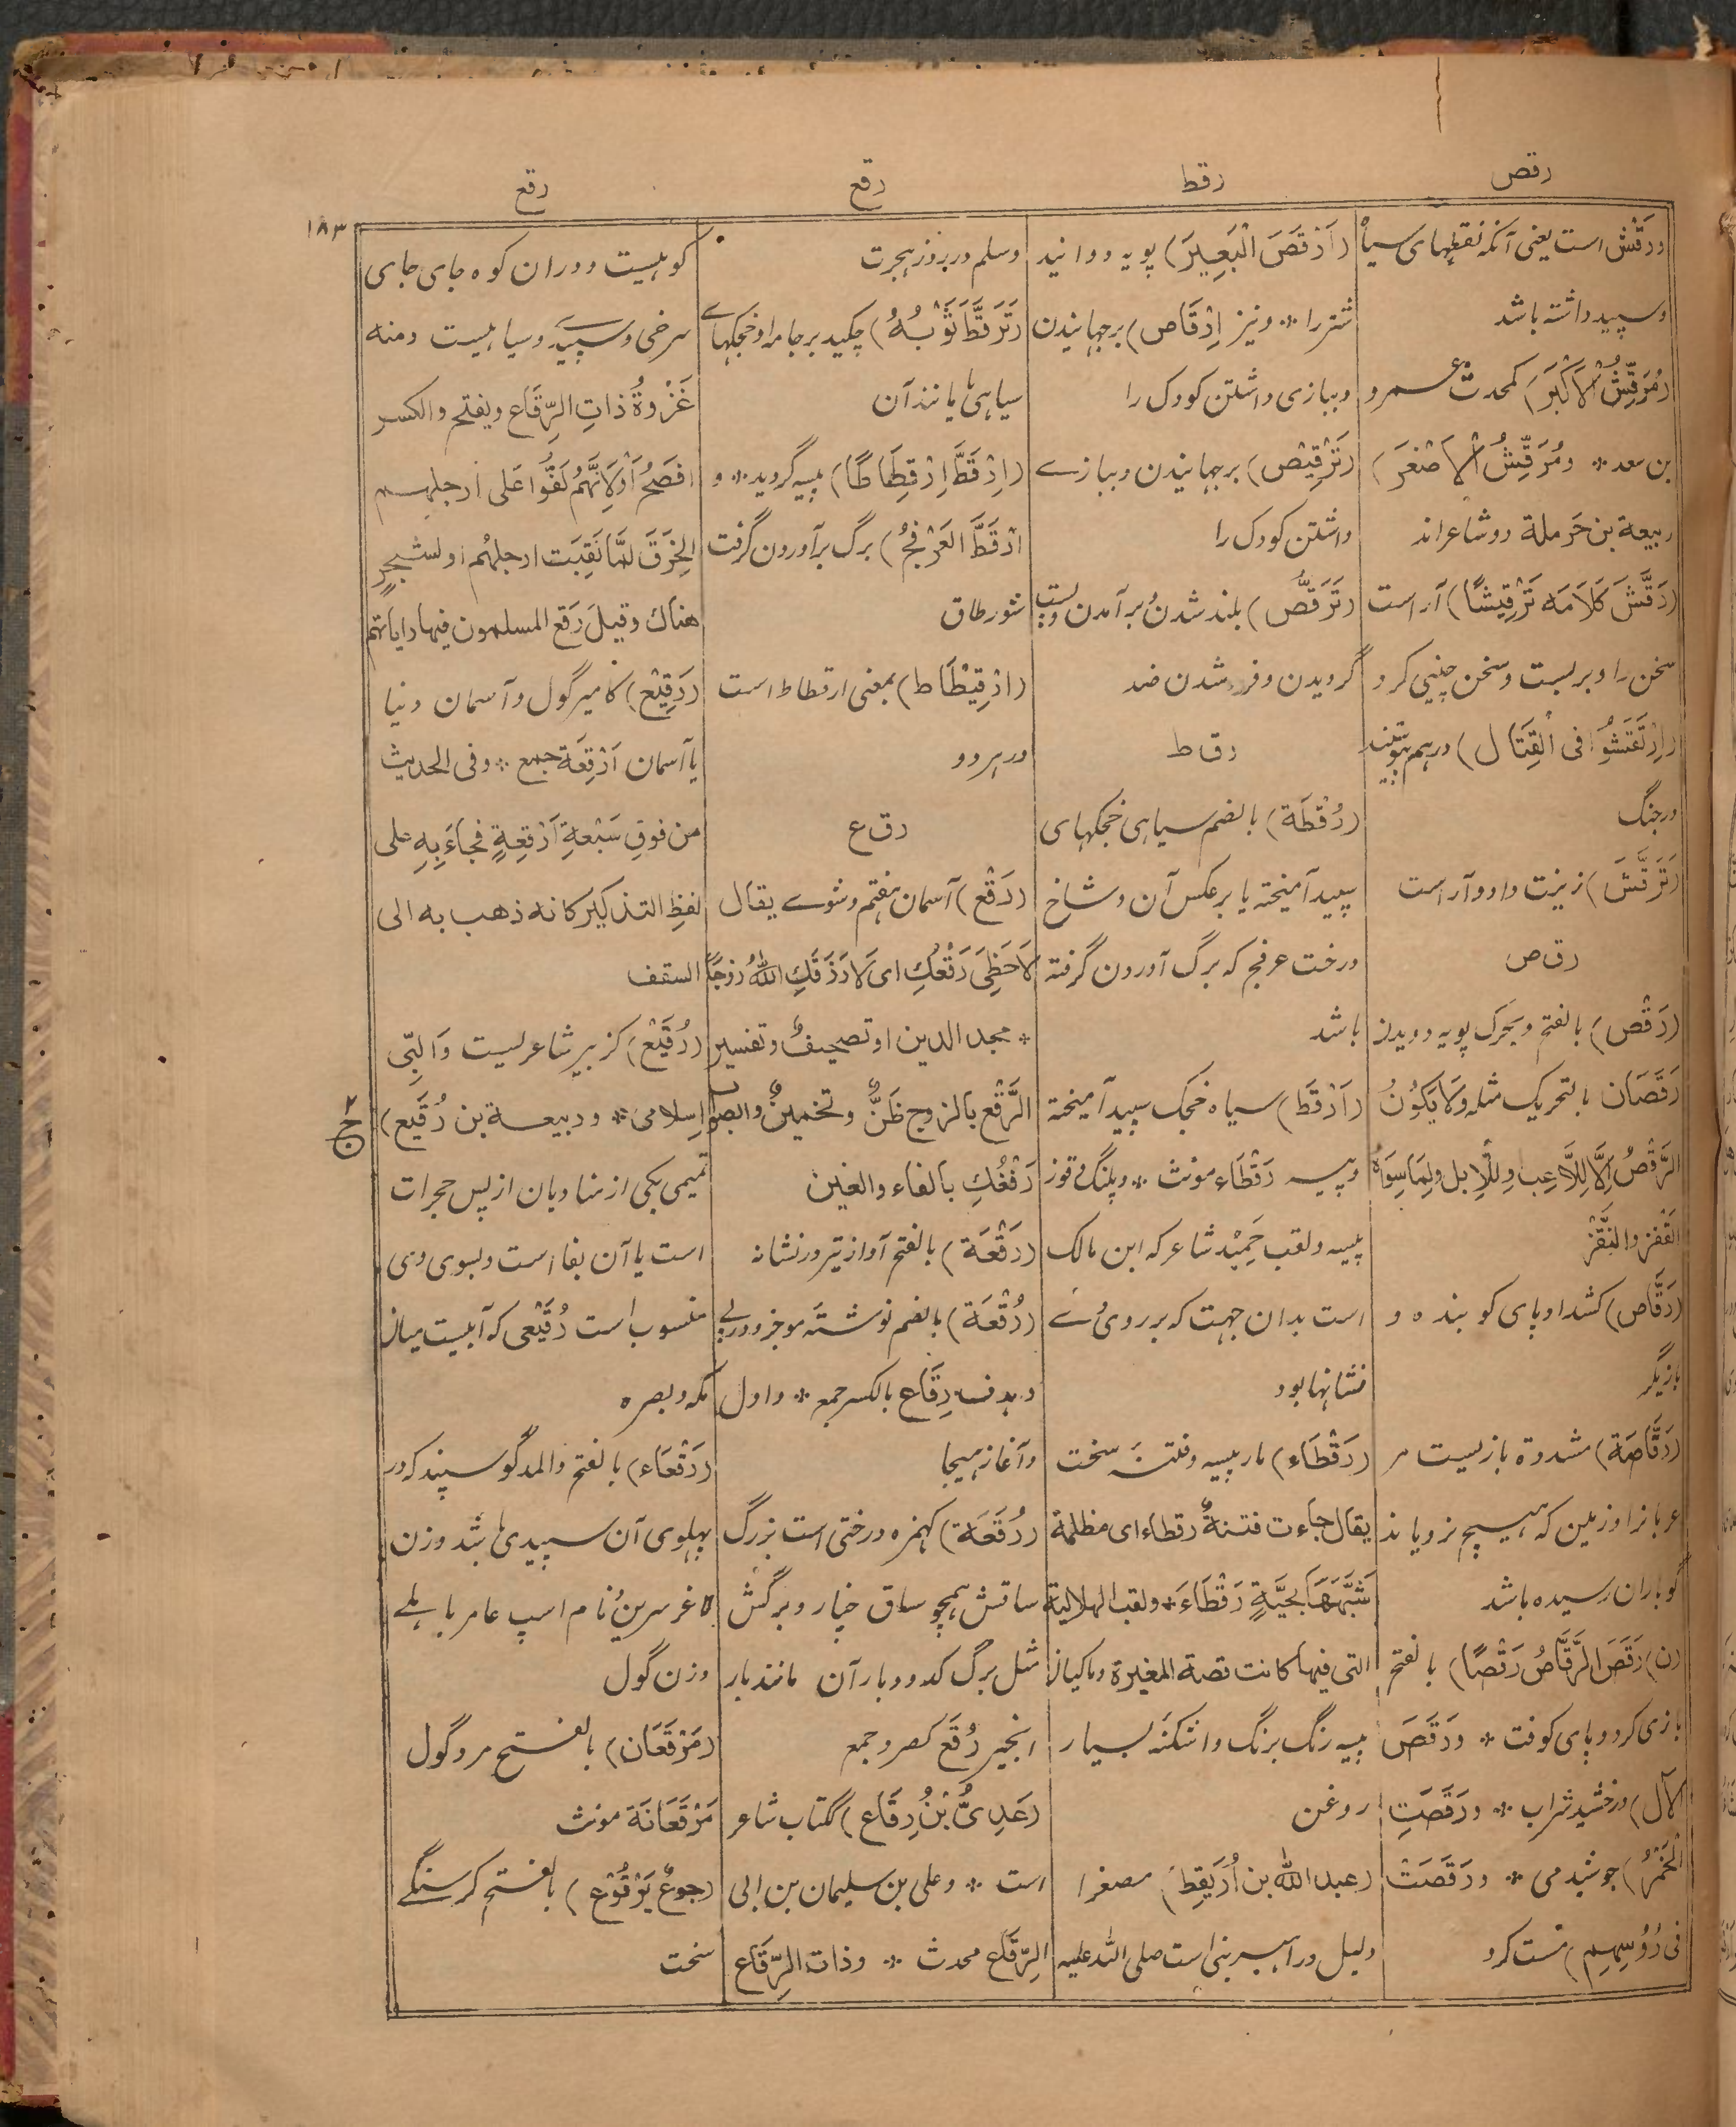 رقص
رقط
رقع
رقع
۱۸۳
ورقش است یعنی آنکه نقطهای سیاه
وسپید داشته باشد
(مُرَقِّشُ الْاَكْبَرَ) کمحدث عمرو
بن سعد * ومُرَقِّشُ الْاَصْغَرَ)
ربیعة بن حَرملة دو شاعراند
(رَقَّشَ كَلَامَه تَرْقِيْشًا) آراست
سخن را وبربست وسخن چینی کرد
(اِرْتَقَشُوْا فی الْقِتَال) درهم
درجنگ
(تَرَقَّشَ) زینت داد وآراست
رق ص
(رَقْص) بالفتح ویحرک پویه دویدن
رَقَصَان بالتحریک مثله وَلَا يَكُوْنُ
الرَّقْصُ اِلَّا لِلَّاعِبِ وللْاِبل ولِمَا سِوَاهُ
القَفْز والنَّقْز
(رَقَّاص) کشداد پای کوبنده و
بازیگر
(رَقَّاصَة) مشددة بازلیست مر
عربانرا وزمین که هیچ نرویاند
گو باران رسیده باشد
(ن) رَقَصَ الرَّقَّاصُ رَقْصًا) بالفتح
بازی کرد وپای کوفت * ورَقَصَ
الآل) درخشید شراب * ورَقَصَتِ
الْخَمْرُ) جوشید می * ورَقَصَتْ
فی رُؤُسِهِم) مست کرد
(اَرْقَصَ الْبَعِيْرَ) پویه دوانید
شتررا * ونیز اِرْقَاص) برجهانیدن
وببازی داشتن کودک را
(تَرْقِيْص) برجهانیدن وببازے
داشتن کودک را
(تَرَقُّص) بلند شدن وبرآمدن وپست
گردیدن وفرو شدن ضد
رق ط
(رُقْطَة) بالضم سیاهی خجکهای
سپید آمیخته یا برعکس آن وشاخ
درخت عرفج که برگ آوردن گرفته
باشد
(اَرْقَط) سیاه خجک سپید آمیخته
وپیسه رَقْطَاء مونث * وپلنگ وقوز
پیسه ولقب حَمِيْد شاعر که ابن مالک
است بدان جهت که برروئے
نشانها بود
(رَقْطَاء) مار پیسه وفتنه سخت
یقال جاءت فتنةٌ رقطاء ای مظلمة
شَبَّهَهَا بِحَيَّةٍ رَقْطَاءَ * ولقب الهلالیة
التی فیها کانت قصة المغیرة وماکیان
پیسه رنگ برنگ واشکنه بسیار
روغن
(عبد الله بن اُرَيْقِط) مصغرا
دلیل وراهبر نبی است صلی الله علیه
وسلم در روز هجرت
(تَرَقَّطَ ثَوْبُهُ) چکید برجامه او خجکهاے
سیاهی یا مانند آن
(اِرْقَطَّ اِرْقِطَاطًا) پیسه گردید * و
ارْقَطَّ العَرْفَجُ) برگ برآوردن گرفت
شور طاق
(ارْقِيْطَاط) بمعنی ارقطاط است
درهردو
رق ع
(رَقْع) آسمان هفتم وشوے یقال
لَاحَظِیَ رَقْعُكِ ای لَا رَزَقَكِ اللهُ زوجًا
* مجد الدین او تصحیفٌ وتفسیر
الرَّقْع بالزوج ظَنٌّ وتخمینٌ والصواب
رَفْغُكِ بالفاء والغین
(رَقْعَة) بالفتح آواز تیر درنشانه
(رُقْعَة) بالضم نوشته موخر ودرپی
وبدف رِقَاع بالکسر جمع * واول
وآغاز هیجا
(رُقَعَة) کهمزه درختی است بزرگ
ساقش همچو ساق خیار وبرگش
مثل برگ کدو وبارآن مانند بار
انجیر رُقَع کصرد جمع
(عَدِیُّ بْنُ رِقَاع) ککتاب شاعر
است * وعلی بن سلیمان بن ابی
الرِّقَاع محدث * وذات الرِّقَاع
کوهیست ودران کوه جای جای
سرخی وسپیدی وسیاهیست ومنه
غَزْوةُ ذاتِ الرِّقَاع ویفتح والکسر
افصحُ اَوْ لِاَنَّهُمْ لَفُّوْا عَلٰی ارجلهم
الخِرَقَ لَمَّا نَقِبَت ارجلهُم او لشجرٍ
هناك وقیلَ رَقع المسلمون فیها رایاتهم
(رَقِيْع) کامیر گول وآسمان دنیا
یا آسمان اَرْقِعَة جمع * وفی الحدیث
من فوقِ سَبْعَةِ اَرْقِعةٍ فجاءَ بِهِ علی
لفظِ التذکیر کانه ذهب به الی
السقف
(رُقَيْع) کزبیر شاعریست وَالبِی
اسلامی * وربیعة بن رُقَيع)
تمیمی یکی از منادیان از پس حجرات
است یا آن بفا است وبسوی وی
منسوب است رُقَيْعی که آبیست میان
مکه وبصره
(رَقْعَاء) بالفتح والمد گوسپند که در
پهلوی آن سپیدی باشد وزن
لاغر سرین ونام اسپ عامر باهلے
وزن گول
(مَرْقَعَان) بالفتح مرد گول
مَرْقَعَانَة مونث
(جوعٌ یَرْقُوْع) بالفتح گرسنگے
سخت